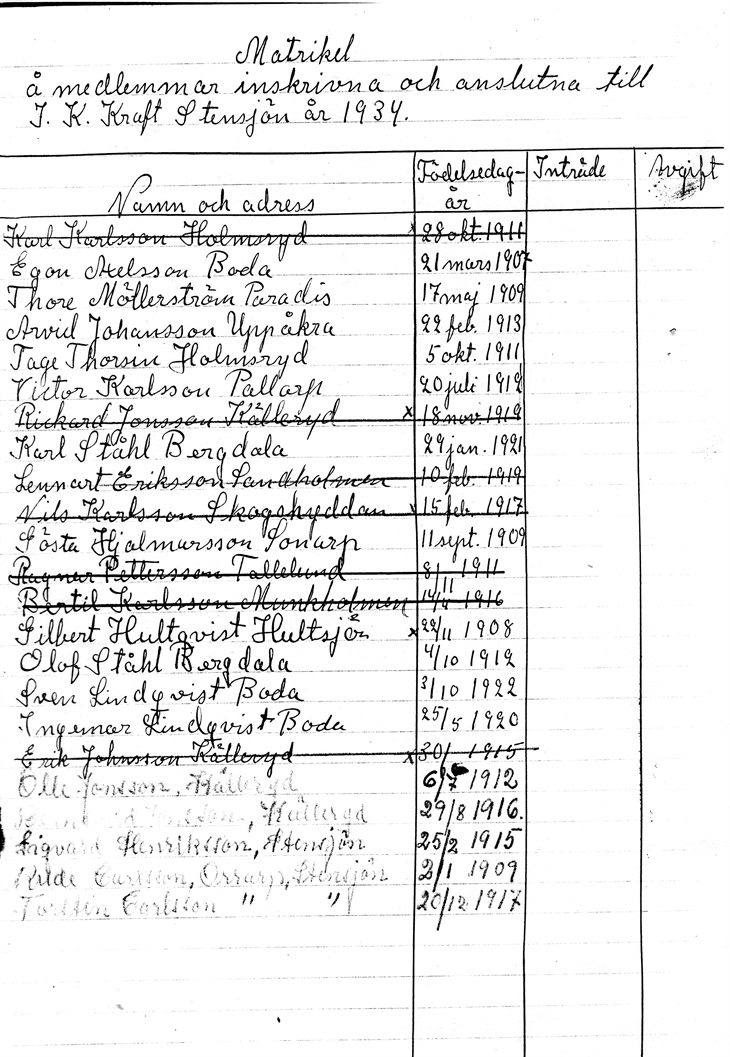 Matrikel
å medlemmar inskrivna och anslutna till
I. K. Kraft Stensjön år 1934.
Namn och adress Födelsedag- år Inträde Avgift
Karl Karlsson Holmsryd x 28 okt. 1911
Egon Axelsson Boda 21 mars 1907
Thore Möllerström Paradis 17 maj 1909
Arvid Johansson Uppåkra 22 feb. 1913
Tage Thorsin Holmsryd 5 okt. 1911
Victor Karlsson Pallarp 20 juli 1912
Rickard Jonsson Källeryd x 18 nov. 1912
Karl Ståhl Bergdala 29 jan. 1921
Lennart Eriksson Sandholmen 10 feb. 1919
Nils Karlsson Skogshyddan x 15 feb. 1917
Gösta Hjalmarsson Sonarp 11 sept. 1909
Ragnar Pettersson Tallelund 8/11 1911
Bertil Karlsson Munkholmen 1916
Gilbert Hultqvist Hultsjön x 22/11 1908
Olof Ståhl Bergdala 4/10 1912
Sven Lindqvist Boda 3/10 1922
Ingemar Lindqvist Boda 25/5 1920
Erik Johnsson Källeryd x 30/ 1915
Olle Jonsson, Källeryd 6/7 1912
Jonsson, Källeryd 29/8 1916.
Sigvard Henriksson, Stensjön 25/2 1915
Carlsson, Orrarp, Stensjön 2/1 1909
Torsten Carlsson " " 20/12 1917